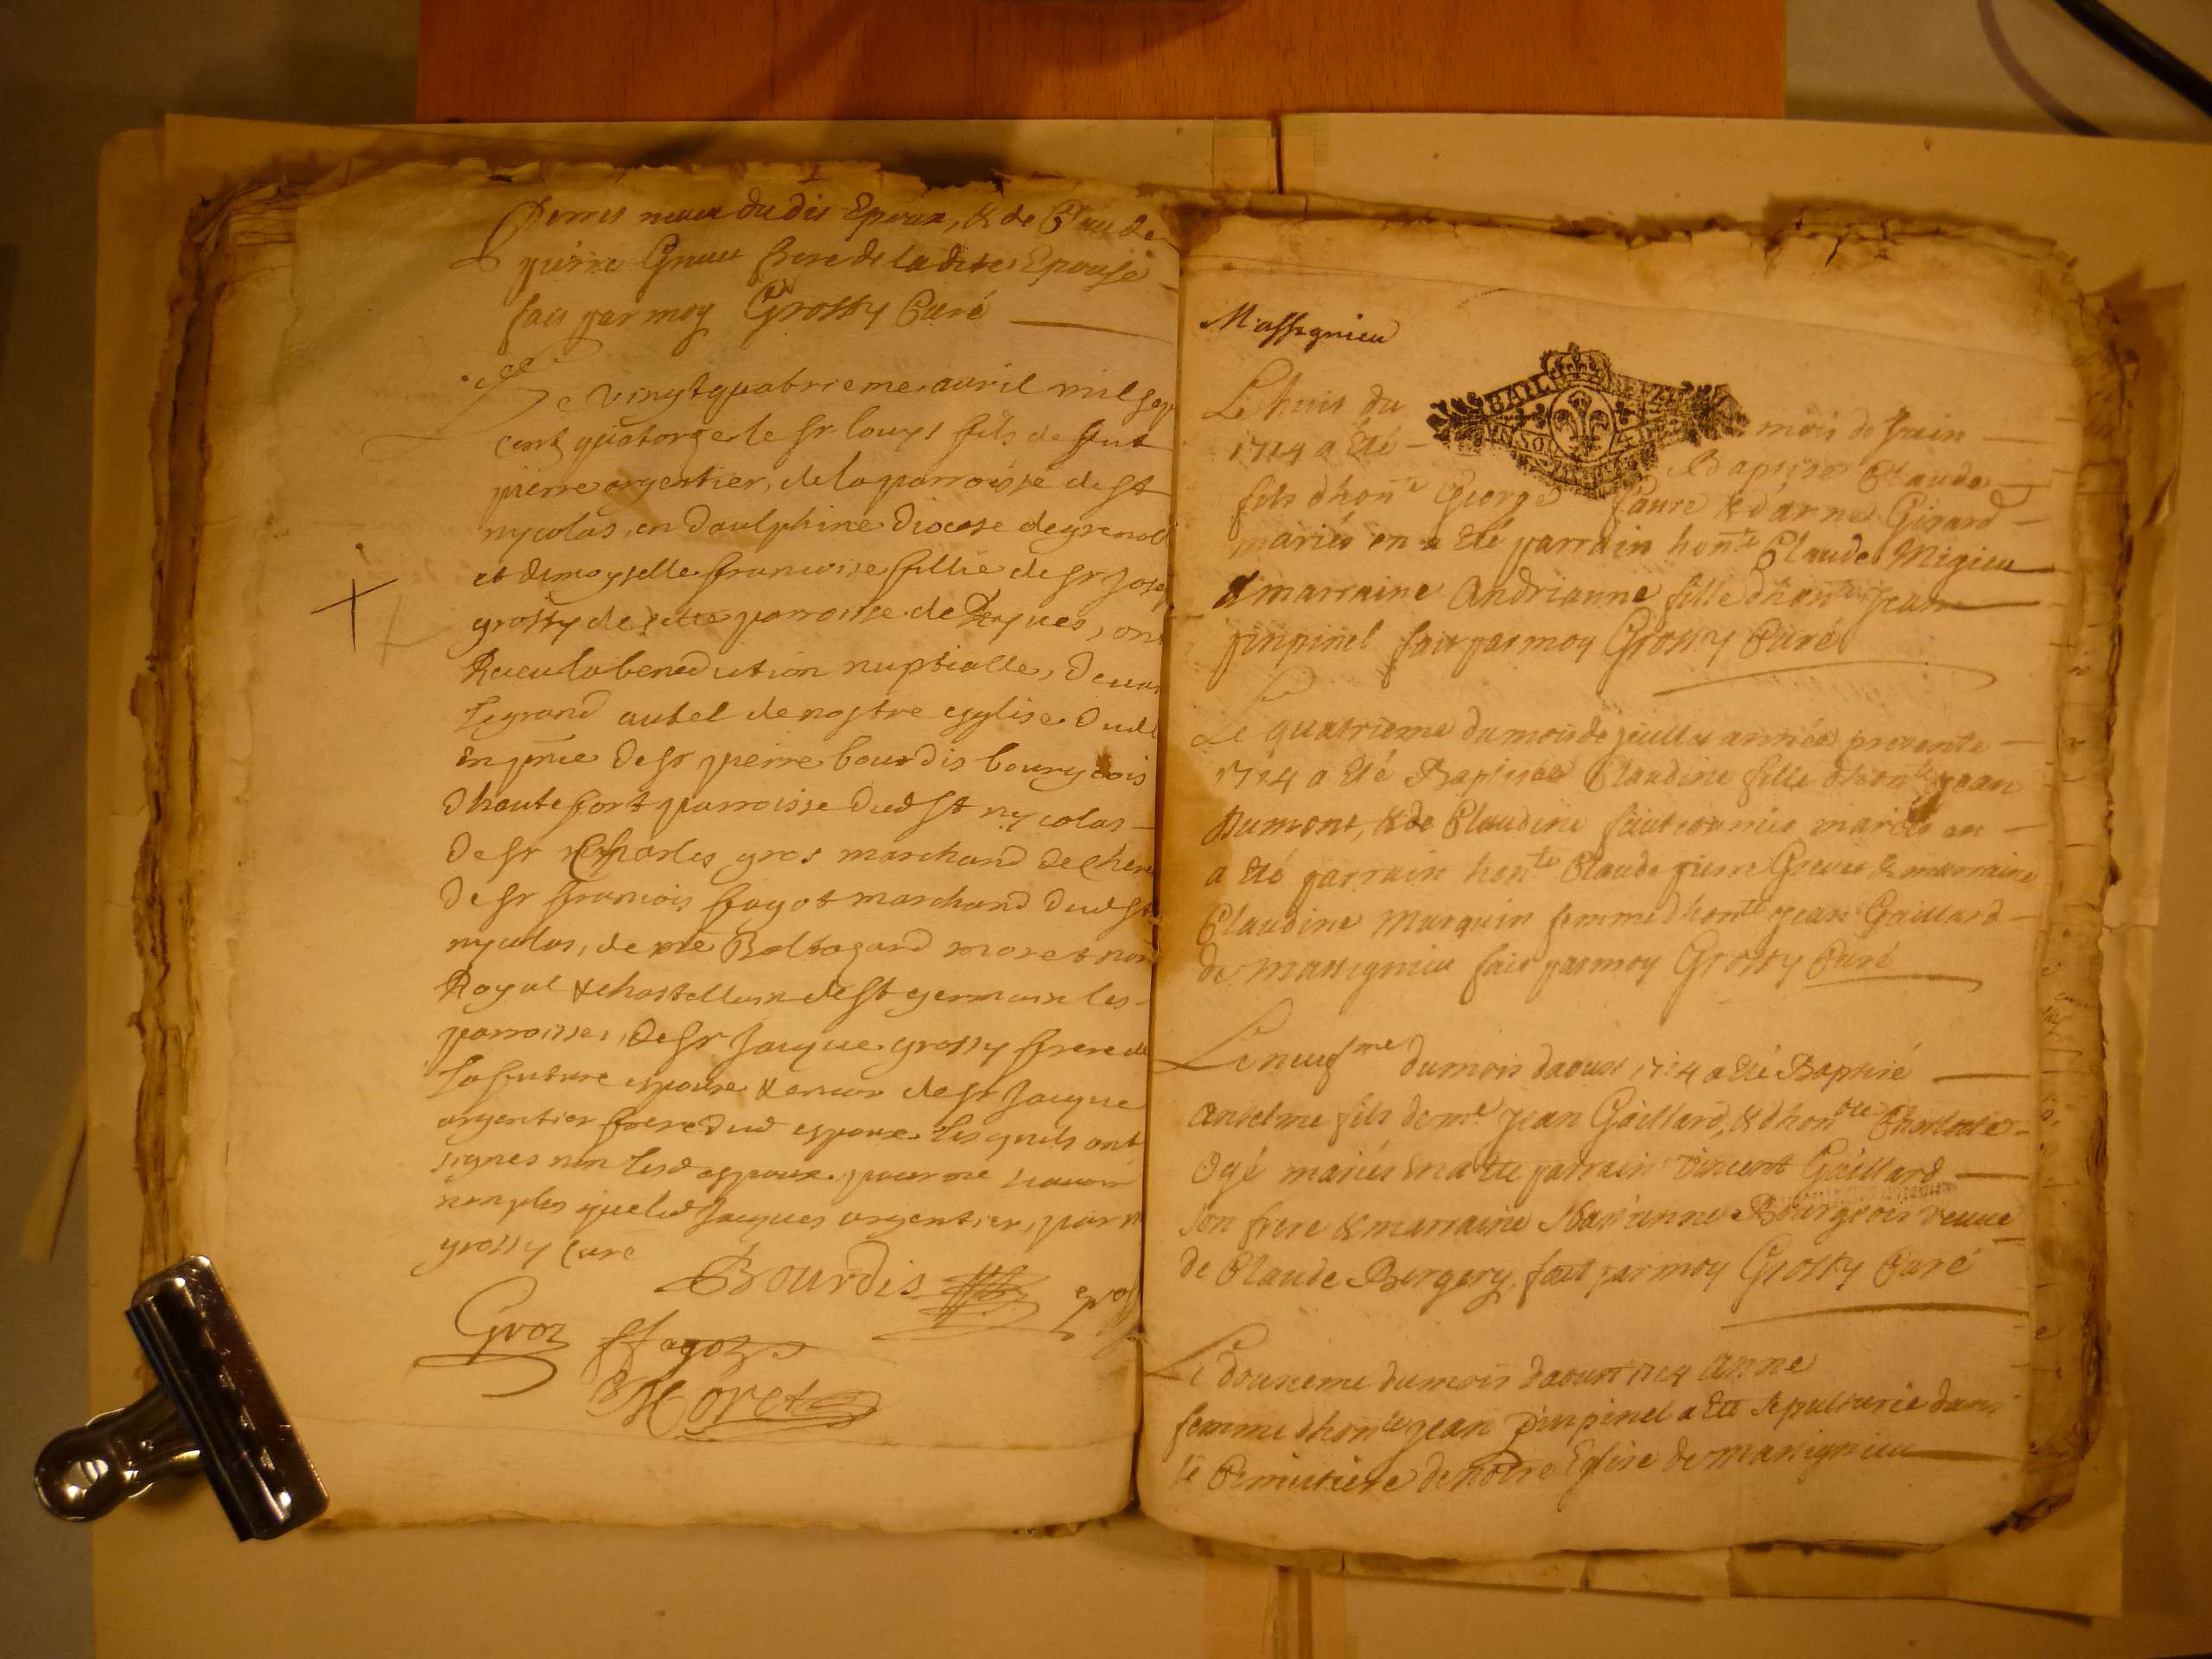 Perret neveu dudit Epoux, & de Claude
pierre Gruet frere de ladite Epouse
fait par moy Grossy Curé
Le vingtquatrieme auril mil sept
cent quatorze le sr louys fils de feut
pierre argentier, de la parroisse de st
nycolas, en daulphine diocese de grenob
et demoyselle francoise fillie de sr Josep
grossy de cette parroisse de , ont
Receu la benediction nuptialle, deuan
le grand autel de nostre esglise dud
en pnce de sr pierre bourdis bourgeois
dhautefort parroisse dud st nycolas
de sr Charles gros marchand de
de sr francois ffagot marchand dud st
nycolas, de Baltazard moret
Royal & chastellain de st germain les
parroisses, de sr Jacque grossy frere de
la future espouse & encor de sr Jacque
argentier frere dud espoux lesquels ont
signes non lesd espoux pour ne scauoir
non plus que led Jacques argentier, par m
grossy curé
Bourdis
Groz ffagot
Moret
Massignieu
BAIL
Le huit du mois de Juin
1714 a Eté Baptisé Claude
fils dhonte George faure & danne Girard
mariés en a Eté parrain honte Claude Migieu
& marraine Andrianne fille dhonte Jean
pinpinel fait par moy Grossy Curé
Le quatrieme du mois de juillet année presente
1714 a Eté Baptisée Claudine fille dhonte jean
Dumont, & de Claudine mariés en
a Eté parrain honte Claude pierre Gruet & marraine
Claudine Marquin femme dhonte jean Gaillard
de massignieu fait par moy Grossy Curé
Le neufme du mois daoust 1714 a Eté Baptisé
Anselme fils de me jean Gaillard, & dhonble Charlotte
Ogé mariés en a Eté parrain vincent Gaillard
son frere & marraine Marianne Bourgeois veuue
de Claude Bergery, fait par moy Grossy Curé
Le douzieme du mois daoust 1714 Anne
femme dhonte jean pinpinel a Eté sepulturée dans
le Cemittiere de notre Eglise de massignieu